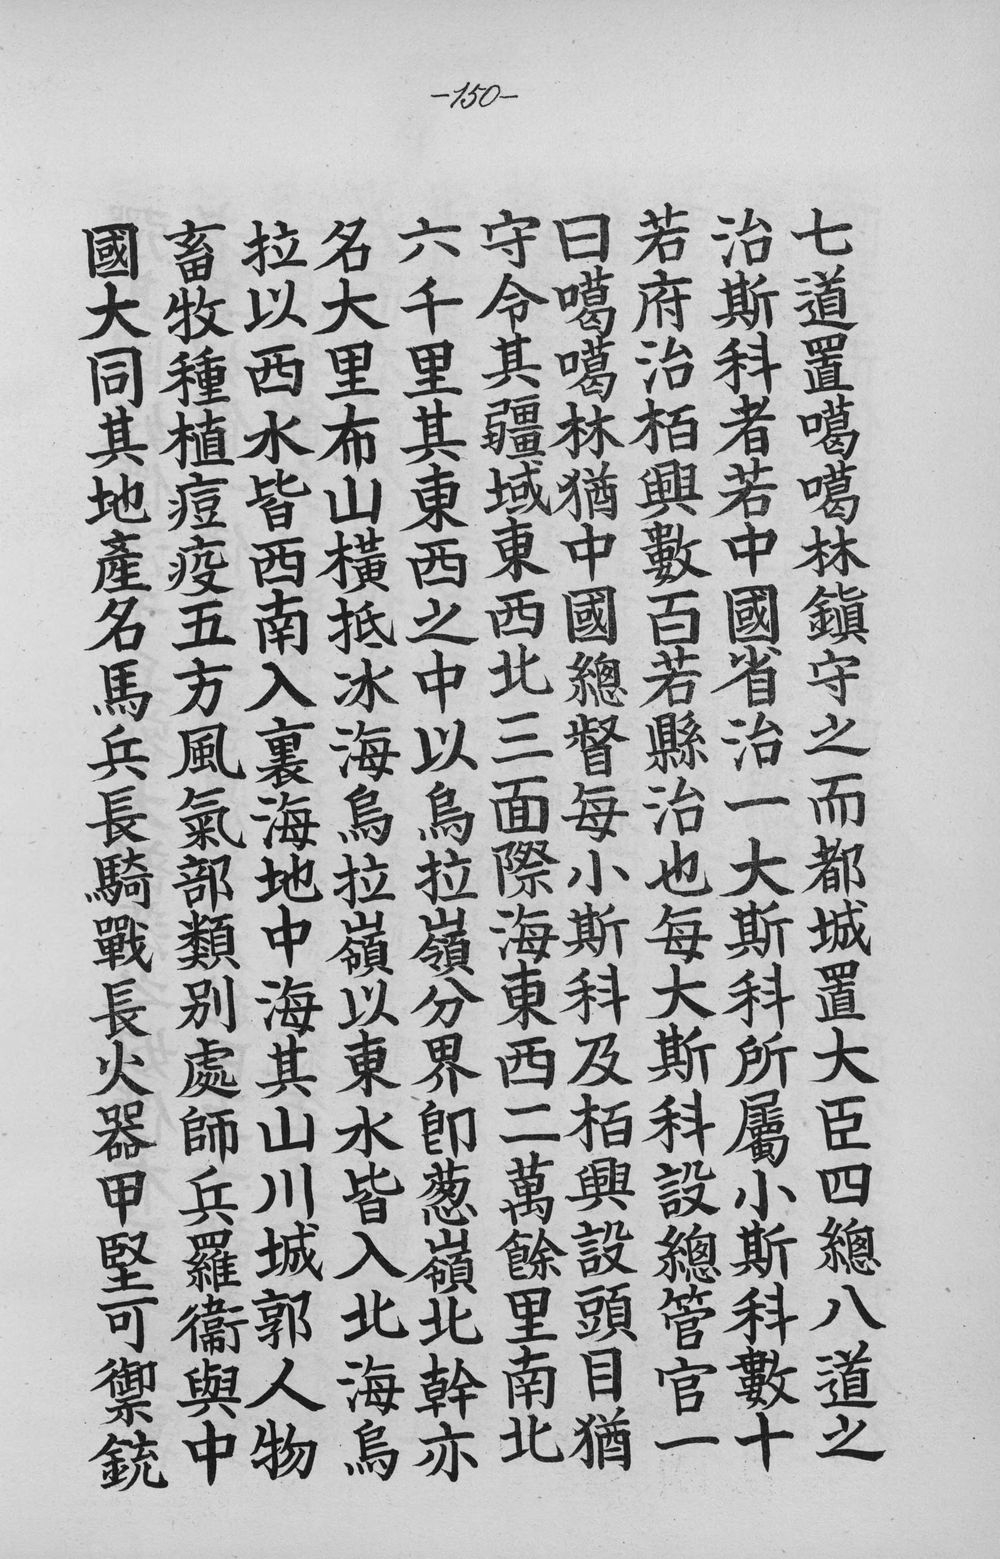 -150-
七道置噶噶林鎭守之而都城置大臣四總八道之
治斯科者若中國省治一大斯科所屬小斯科數十
若府治栢興數百若縣治也每大斯科設總管官一
曰噶噶林猶中國總督每小斯科及栢興設頭目猶
守令其疆域東西北三面際海東西二萬餘里南北
六千里其東西之中以烏拉嶺分界卽葱嶺北幹亦
名大里布山橫抵冰海烏拉嶺以東水皆入北海烏
拉以西水皆西南入裏海地中海其山川城郭人物
畜牧種植痘疫五方風氣部類別處師兵羅衞與中
國大同其地產名馬兵長騎戰長火器甲堅可禦銃